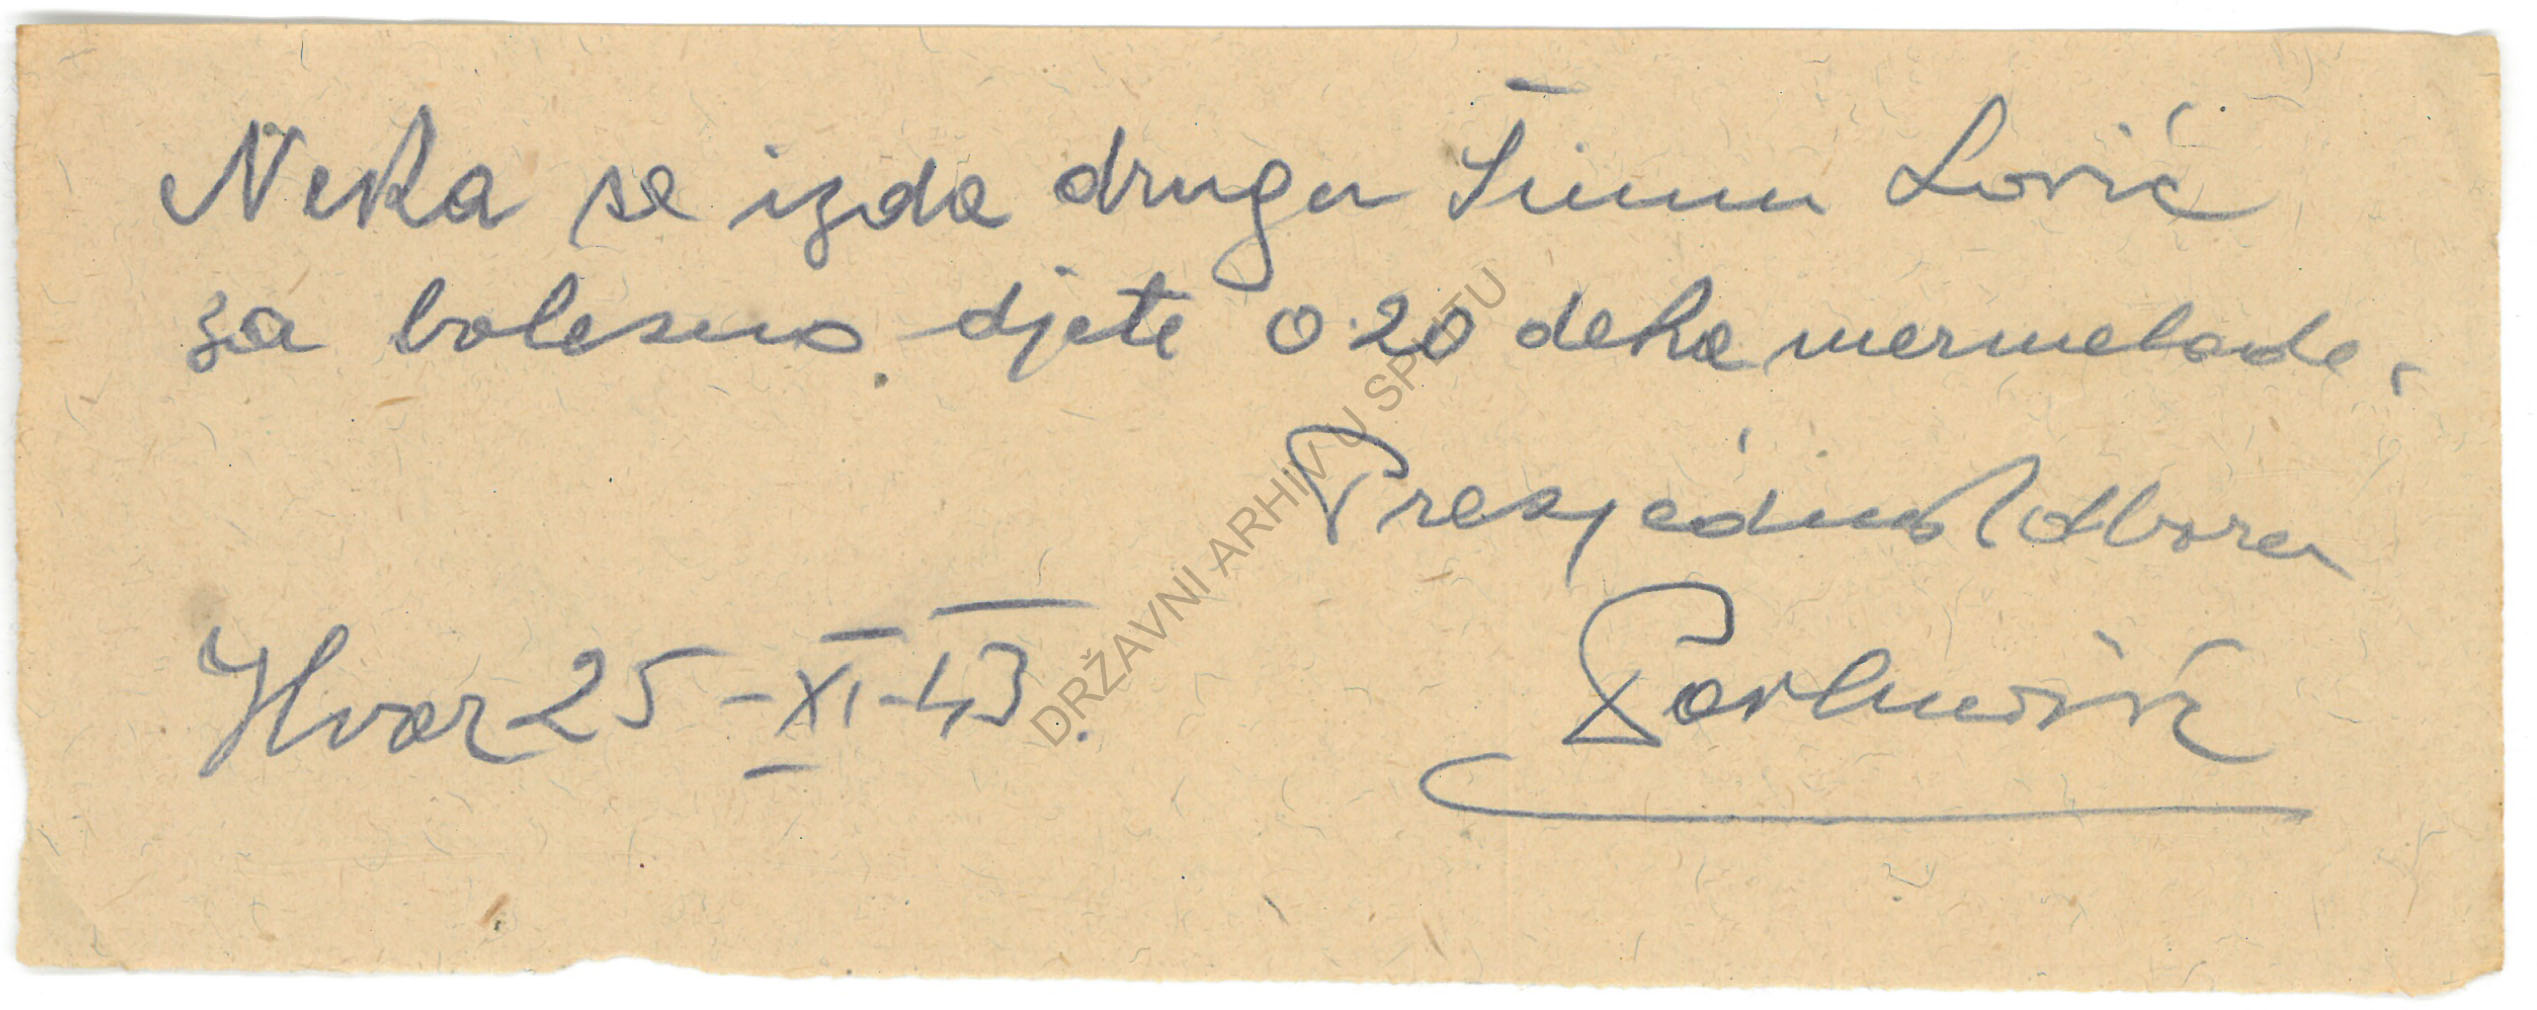 Neka se izda drugu Šimu Lović
za bolesno djete 0.20 deka mermelade.
Presjednik Odbora
Pavlović
Hvar 25-XI-43.
DRŽAVNI ARHIV U SPLITU